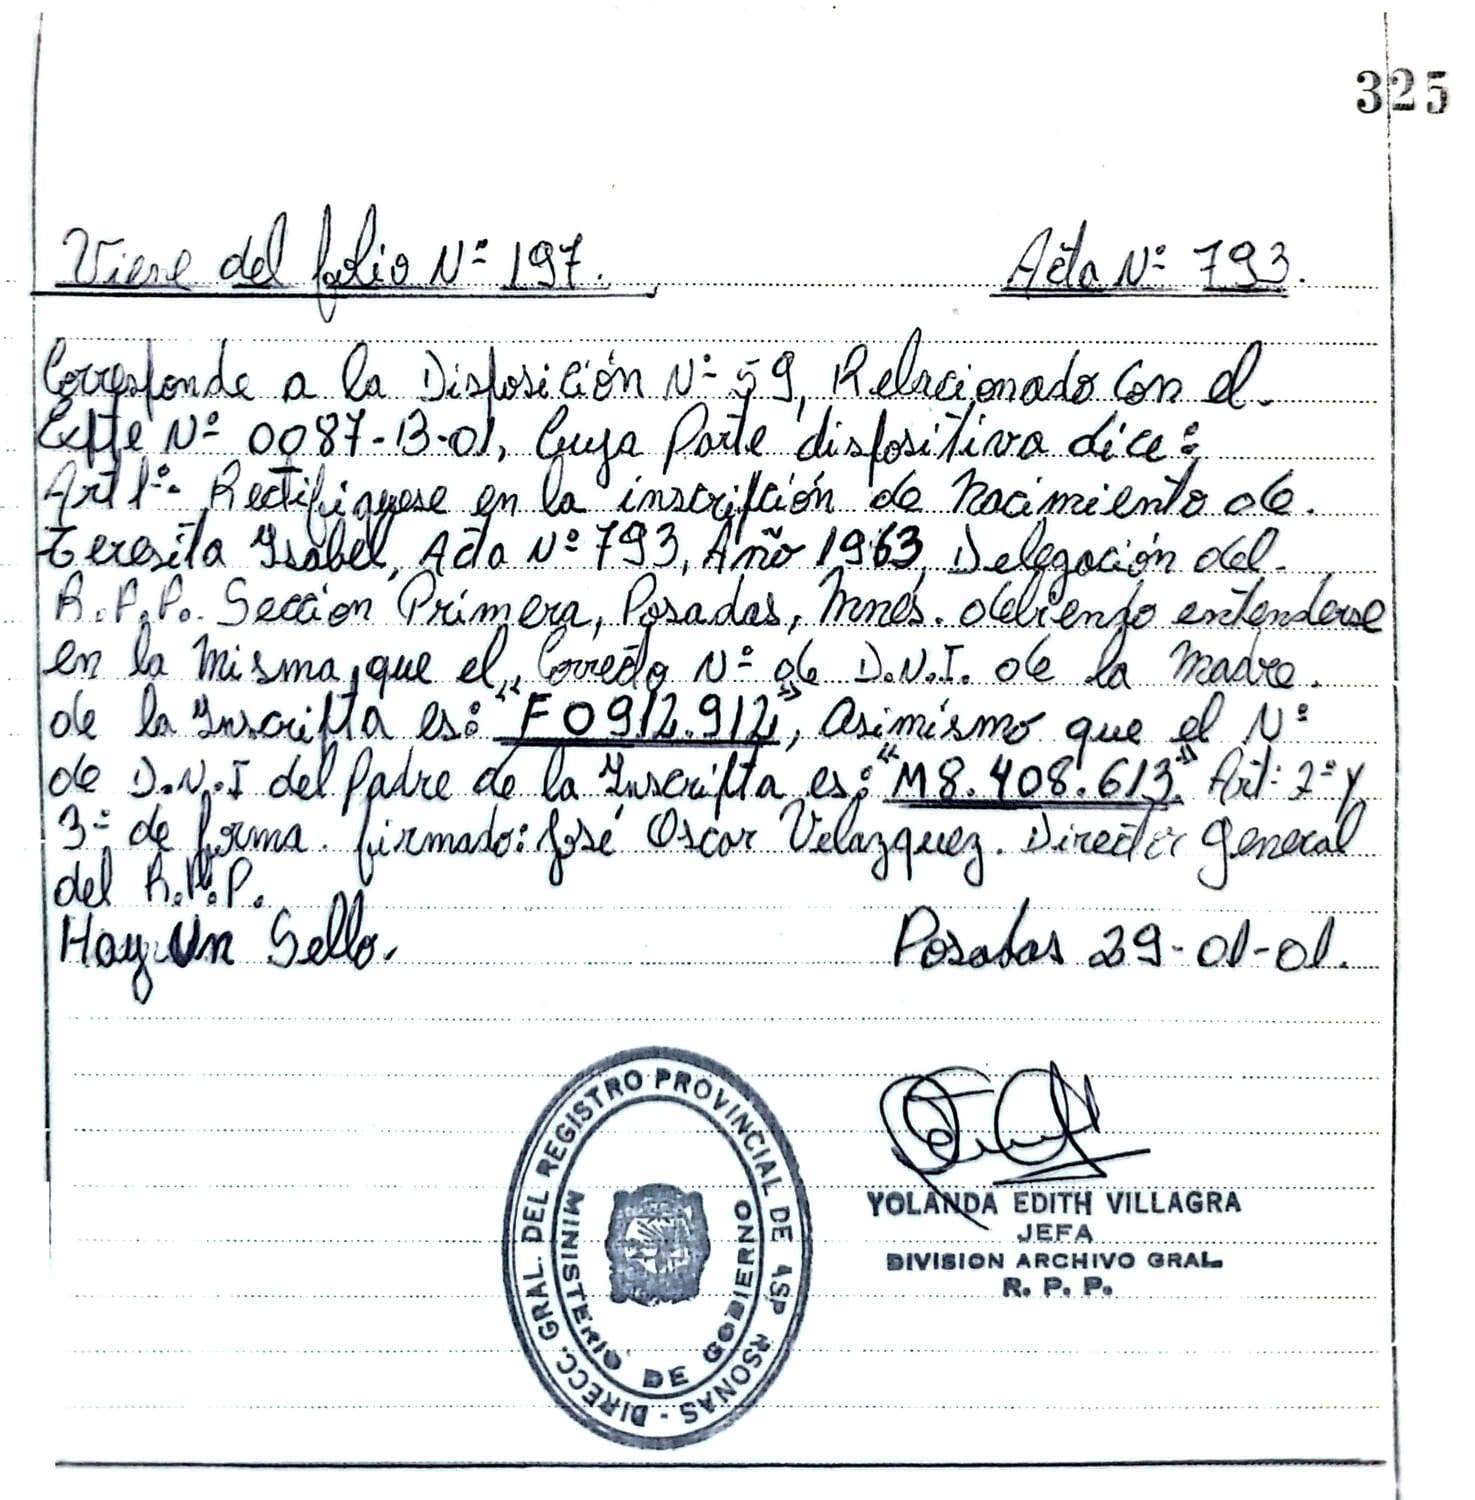 325
Viene del folio Nº 197. Acta Nº 793.
Corresponde a la Disposición Nº 59, Relacionado Con el.
Expte Nº 0087-13-01, Cuya Parte dispositiva dice:
Art 1º- Rectifiquese en la inscripción de Nacimiento de.
Teresita Ysabel, Acta Nº 793, Año 1963, Delegación del.
R.P.P. Sección Primera, Posadas, Mnes. debiendo entenderse
en la Misma, que el, Correcto Nº de D.N.I. de la Madre.
de la Ynscripta es: "F0912.912", asimismo que el Nº
de D.N.I del Padre de la Ynscripta es: "M8.408.613" Art: 2º y
3º de forma. firmado: José Oscar Velazquez. Director General
del R.P.P.
Hay Un Sello. Posadas 29-01-01.
DIRECC. GRAL. DEL REGISTRO PROVINCIAL DE RSONAS -
MINISTERIO DE GOBIERNO
YOLANDA EDITH VILLAGRA
JEFA
DIVISION ARCHIVO GRAL.
R. P. P.